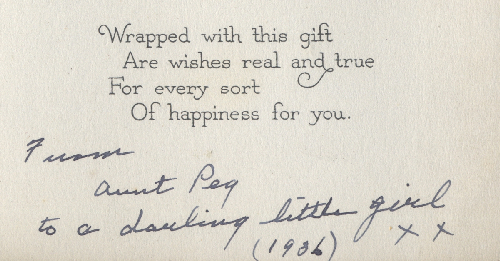 Wrapped with this gift
Are wishes real and true
For every sort
Of happiness for you.
From
Aunt Peg
to a darling little girl
(1936) x x